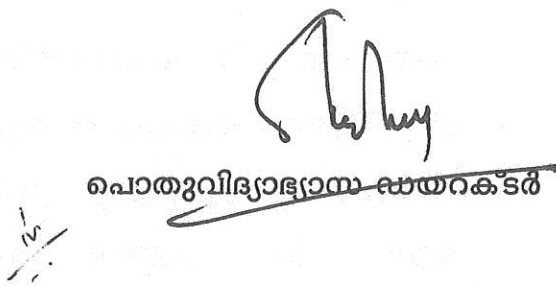 പൊതുവിദ്യാഭ്യാസ ഡയറക്ടർ